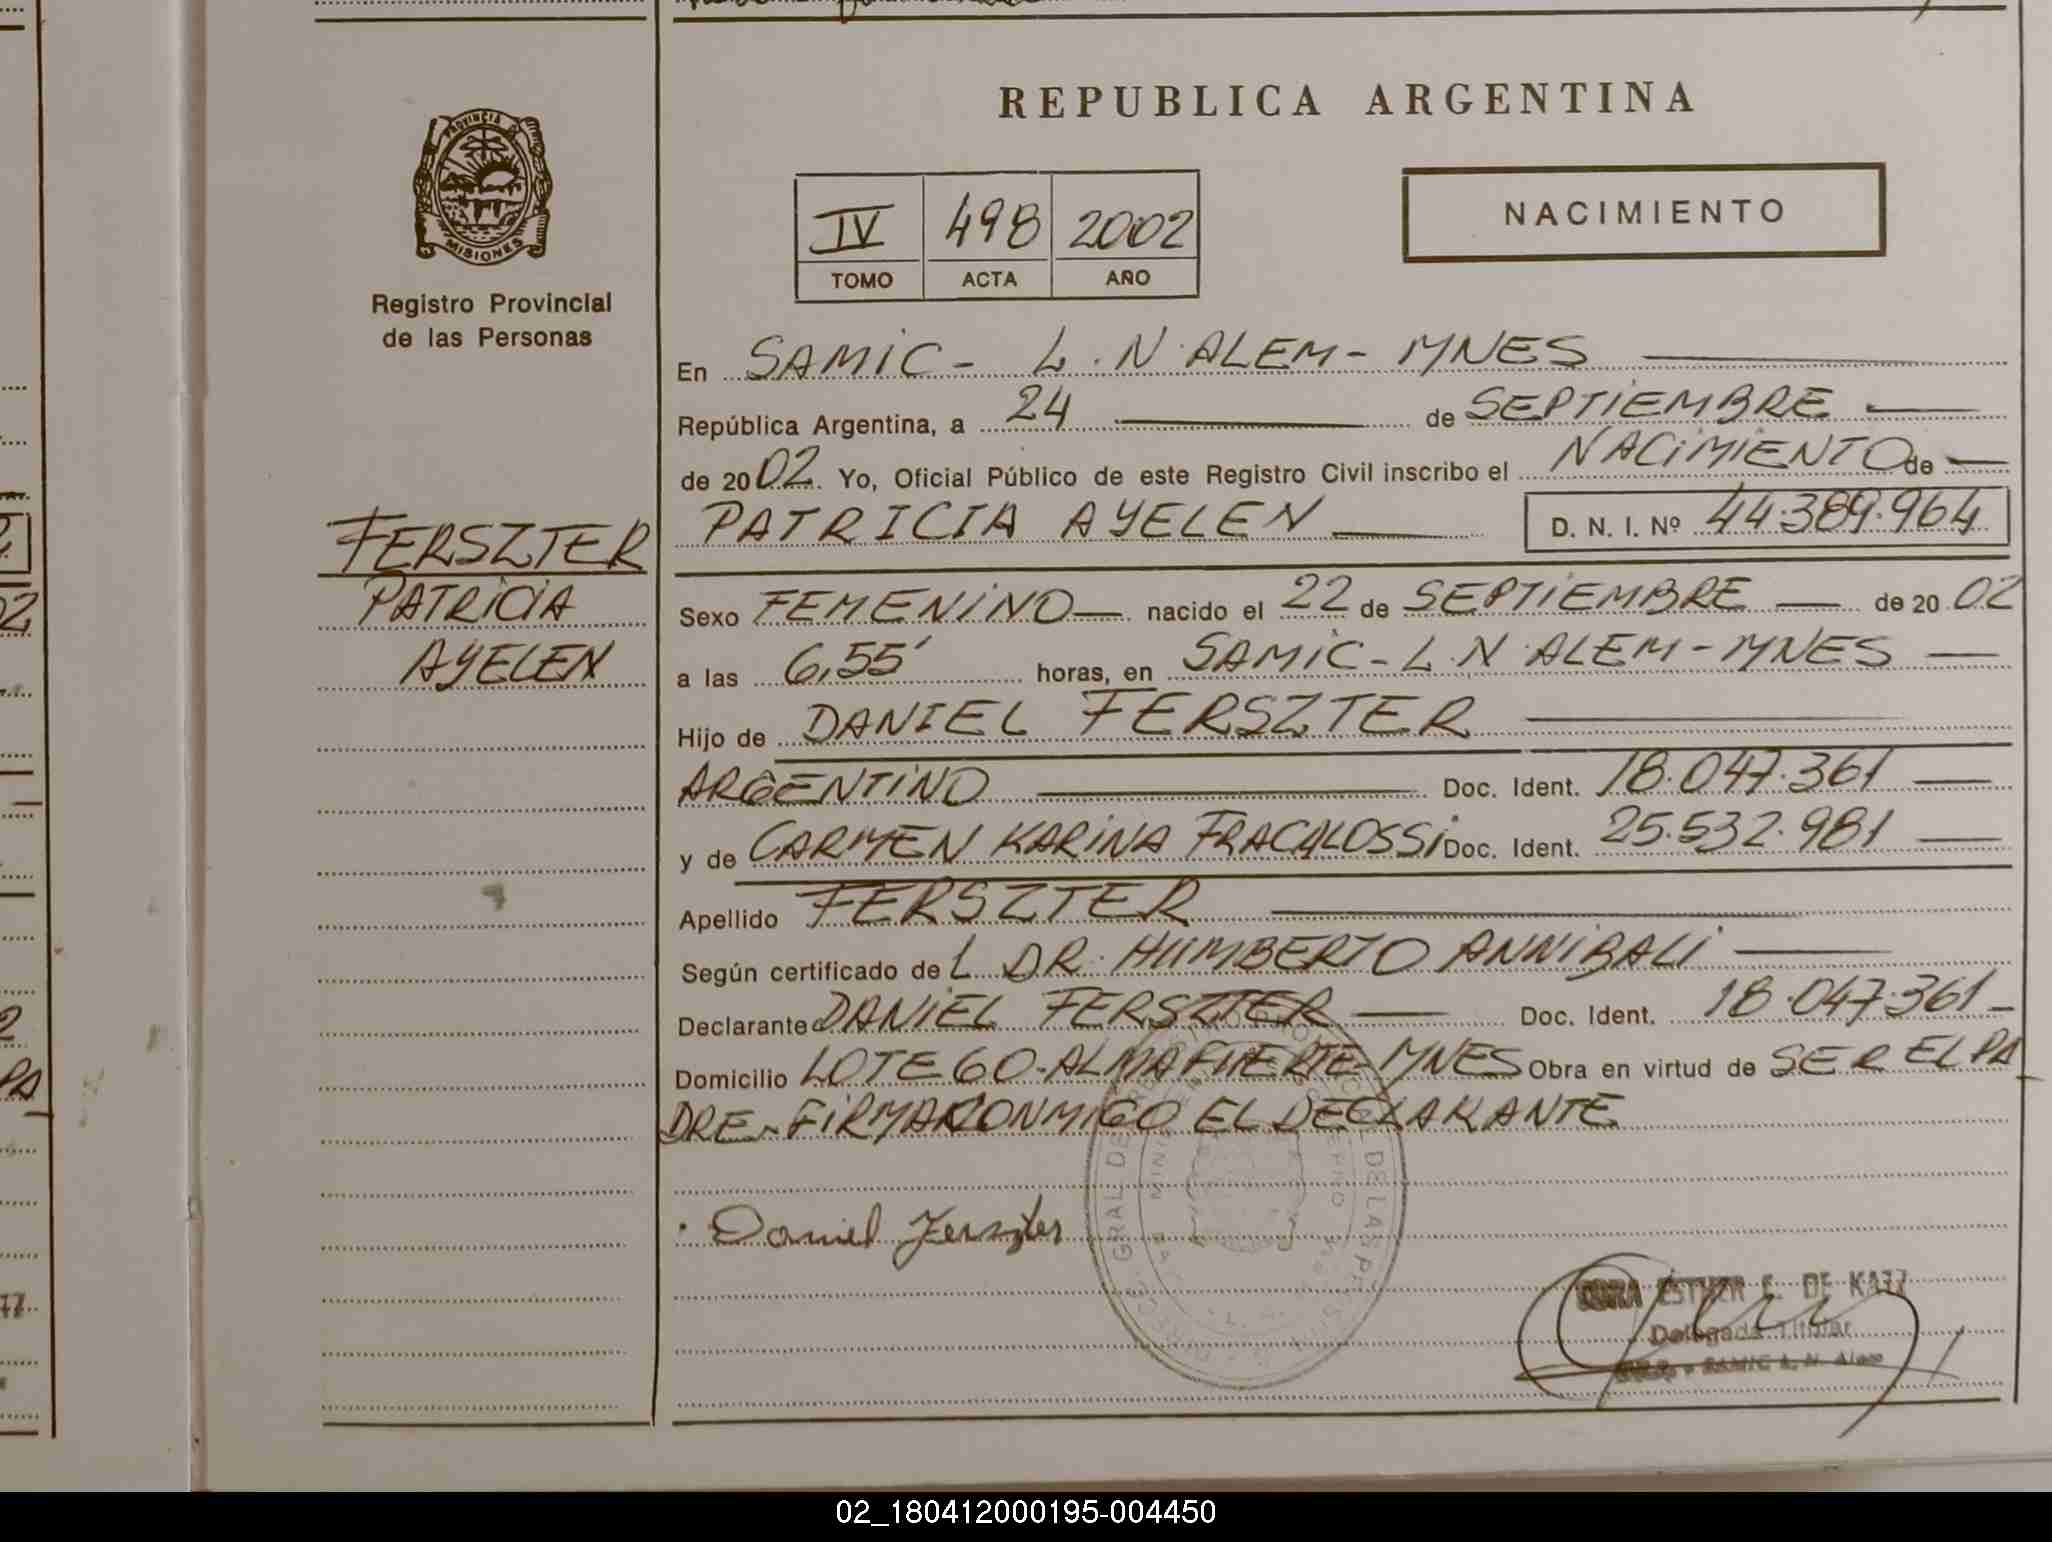 REPUBLICA ARGENTINA
PROVINCIA DE
MISIONES
Registro Provincial
de las Personas
IV 498 2002
TOMO ACTA AÑO
NACIMIENTO
En SAMIC - L.N.ALEM - MNES
República Argentina, a 24 de SEPTIEMBRE
de 2002. Yo, Oficial Público de este Registro Civil inscribo el NACIMIENTO de
PATRICIA AYELEN D. N. I. Nº 44.389.964
FERSZTER
PATRICIA
AYELEN
Sexo FEMENINO nacido el 22 de SEPTIEMBRE de 2002
a las 6,55' horas, en SAMIC - L.N.ALEM - MNES
Hijo de DANIEL FERSZTER
ARGENTINO Doc. Ident. 18.047.361
y de CARMEN KARINA FRACALOSSI Doc. Ident. 25.532.981
Apellido FERSZTER
Según certificado del DR. HUMBERTO ANNIBALI
Declarante DANIEL FERSZTER Doc. Ident. 18.047.361
Domicilio LOTE 60 - ALMAFUERTE - MNES Obra en virtud de SER EL PA
DRE - FIRMA CONMIGO EL DECLARANTE
Daniel Ferszter
ESTHER E. DE KATZ
Delegada Titular
SAMIC L. N. Alem
02_180412000195-004450